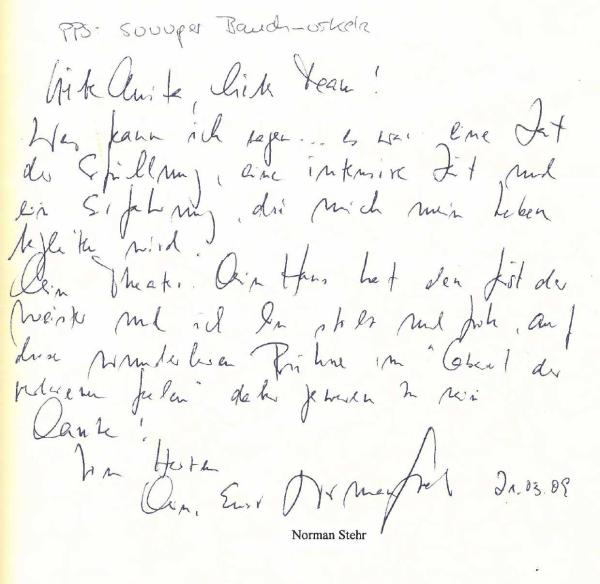 PPS: SOUUUper Bauchmuskeln
Liebe Anita, liebe Team!
Was kann ich sagen... es war eine Zeit
der Erfüllung, eine intensive Zeit und
ein Erfahrung, die mich mein Leben
begleiten wird.
Dein Theater. Dein Haus hat den Geist der
Meister und ich bin stolz und froh, auf
diese wunderbaren Bühne im "Cabaret der
verlorenen Seelen" dabei gewesen zu sein
Danke!
Von Herzen
Dein, Euer Norman Stehr 21.03.09
Norman Stehr